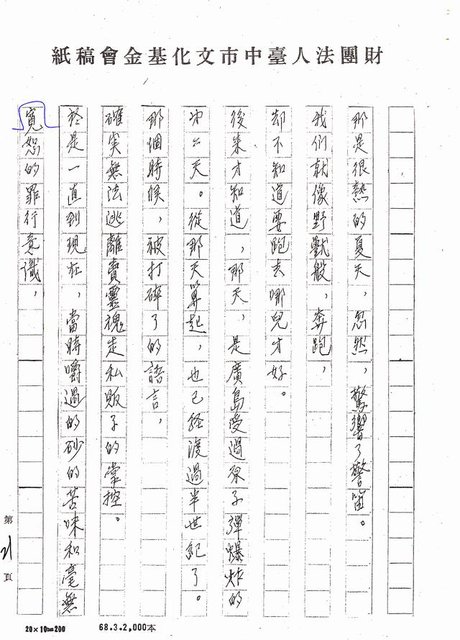 財團法人臺中市文化基金會稿紙
那是很熱的夏天，忽然，驚響了警笛。
我们就像野獸般，奔跑，
却不知道要跑去哪兒才好。
後來才知道，那天，是廣島受過原子彈爆炸的
天。從那天算起，也已經渡過半世紀了。
那個時候，被打碎了的語言，
確実無法逃離賣靈魂走私販子的掌控。
於是一直到現在，當時嚼過的砂的苦味和毫無
寬恕的罪行意識，
第21頁
20×10=200
68.3.2,000本